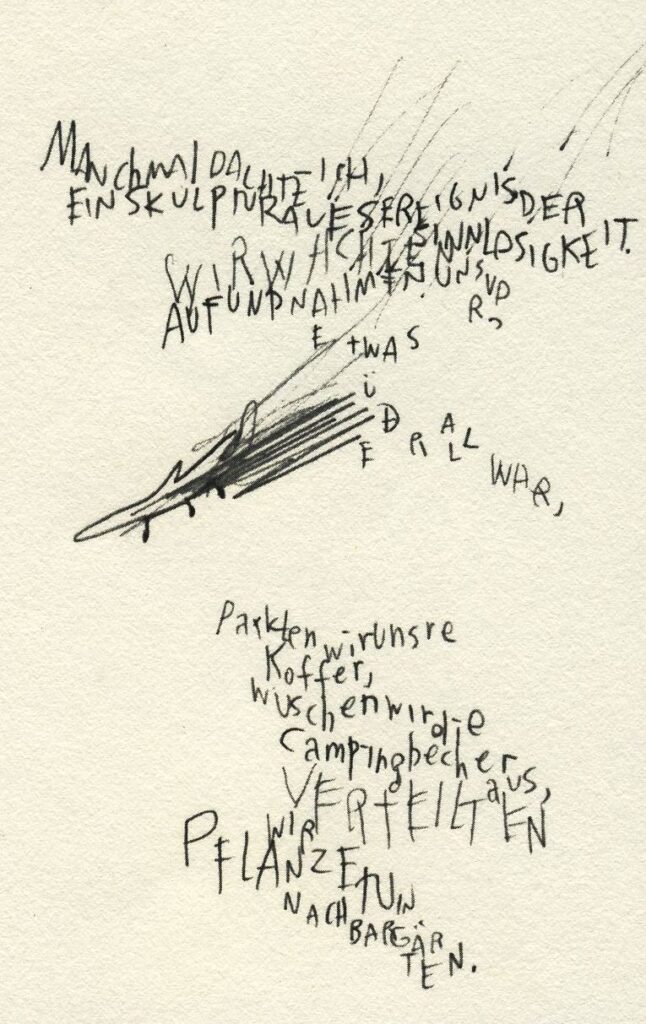 MANchmal DACHTE ICH,
EIN SKULPTURALES EREIGNIS DER
SINNLOSIGKEIT.
WIR WACHTEN
AUF UND NAHMEN UNS VO
R,
ETWAS
Ü
B
E R ALL WAR,
Packten wir unsre
Koffer,
wuschen wir die
Campingbecher
aus,
VERTEILTEN
WIR
PFLANZE
IN
NACH
BARGÄR
TEN.